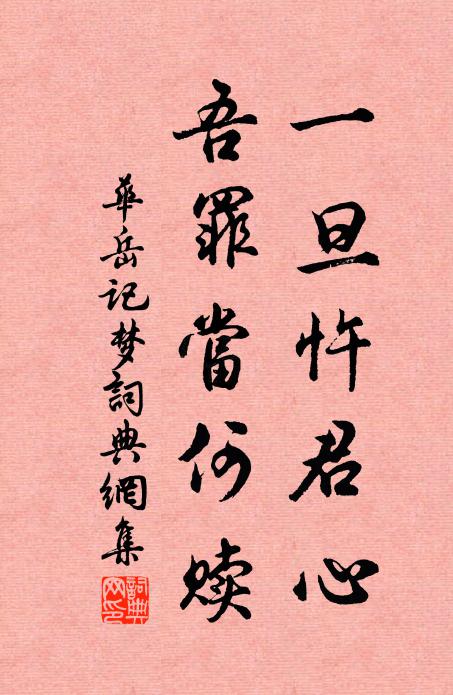 一旦忤君心
吾罪當何赎
華岳记梦詞典網集
詞典网印